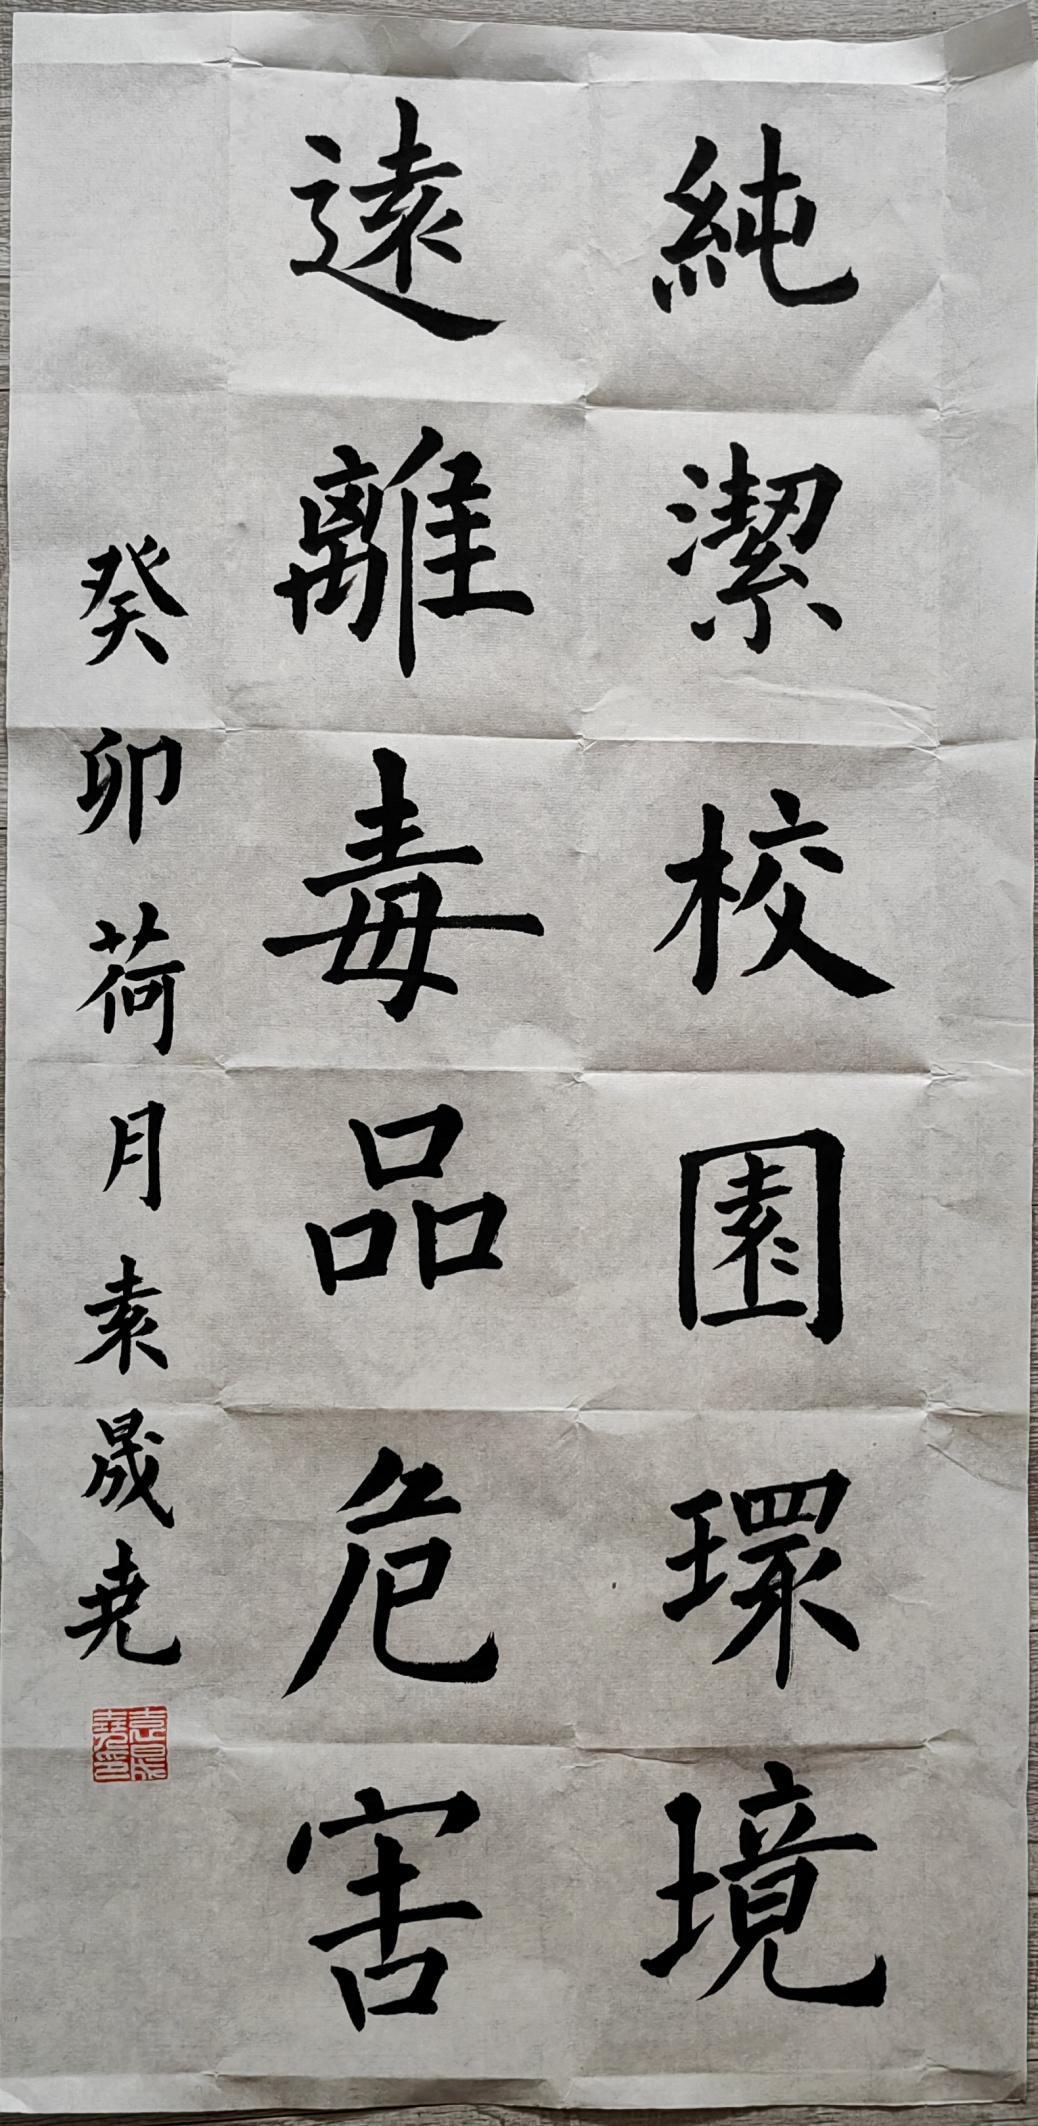 純潔校園環境
遠離毒品危害
癸卯荷月袁晟尧
袁晟堯印